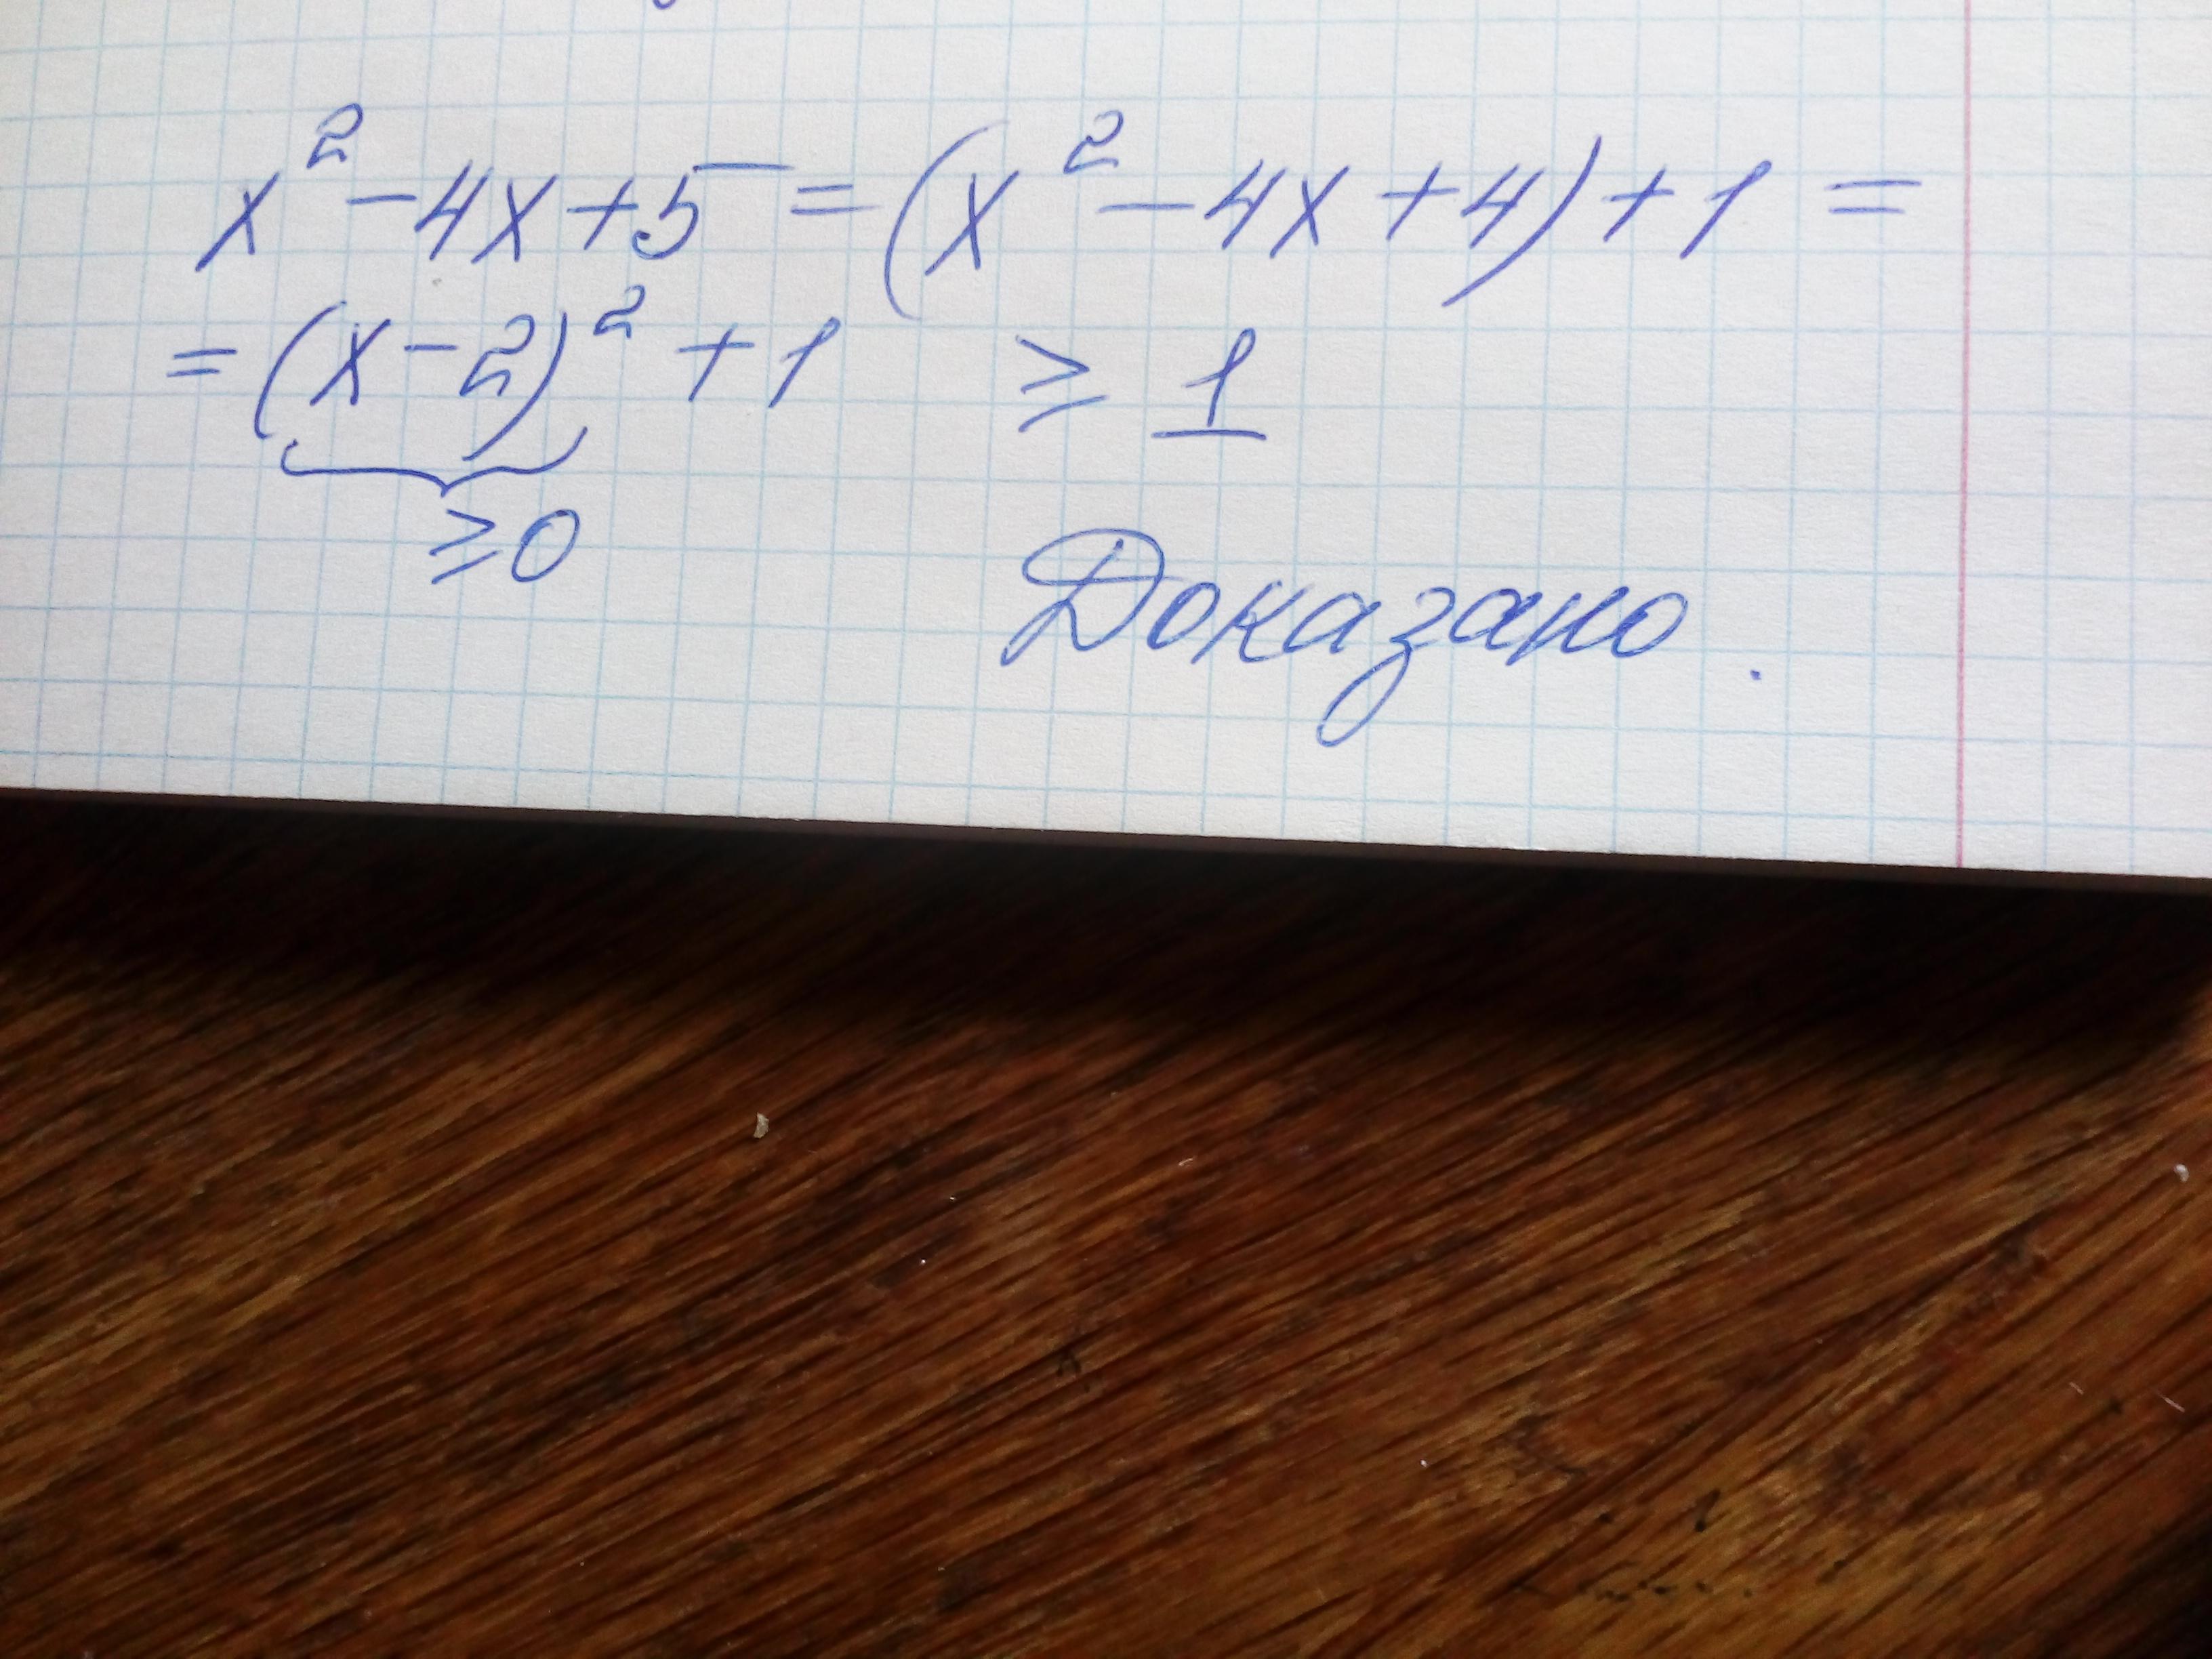 x² - 4x + 5 = (x² - 4x + 4) + 1 =
= (x - 2)² + 1 ≥ 1
≥ 0
Доказано.